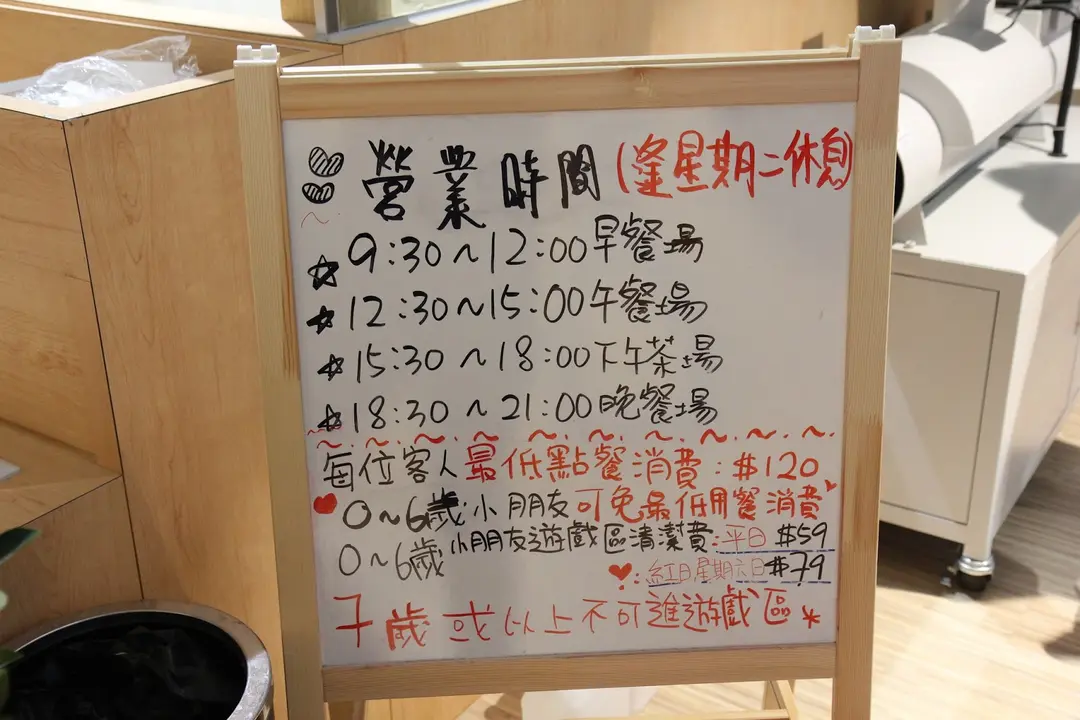 營業時間(逢星期二休息)
9:30~12:00早餐場
12:30~15:00午餐場
15:30~18:00下午茶場
18:30~21:00晚餐場
每位客人最低點餐消費:$120
0~6歲小朋友可免最低用餐消費
0~6歲小朋友遊戲區清潔費:平日$59
:紅日星期六日$79
7歲或以上不可進遊戲區*